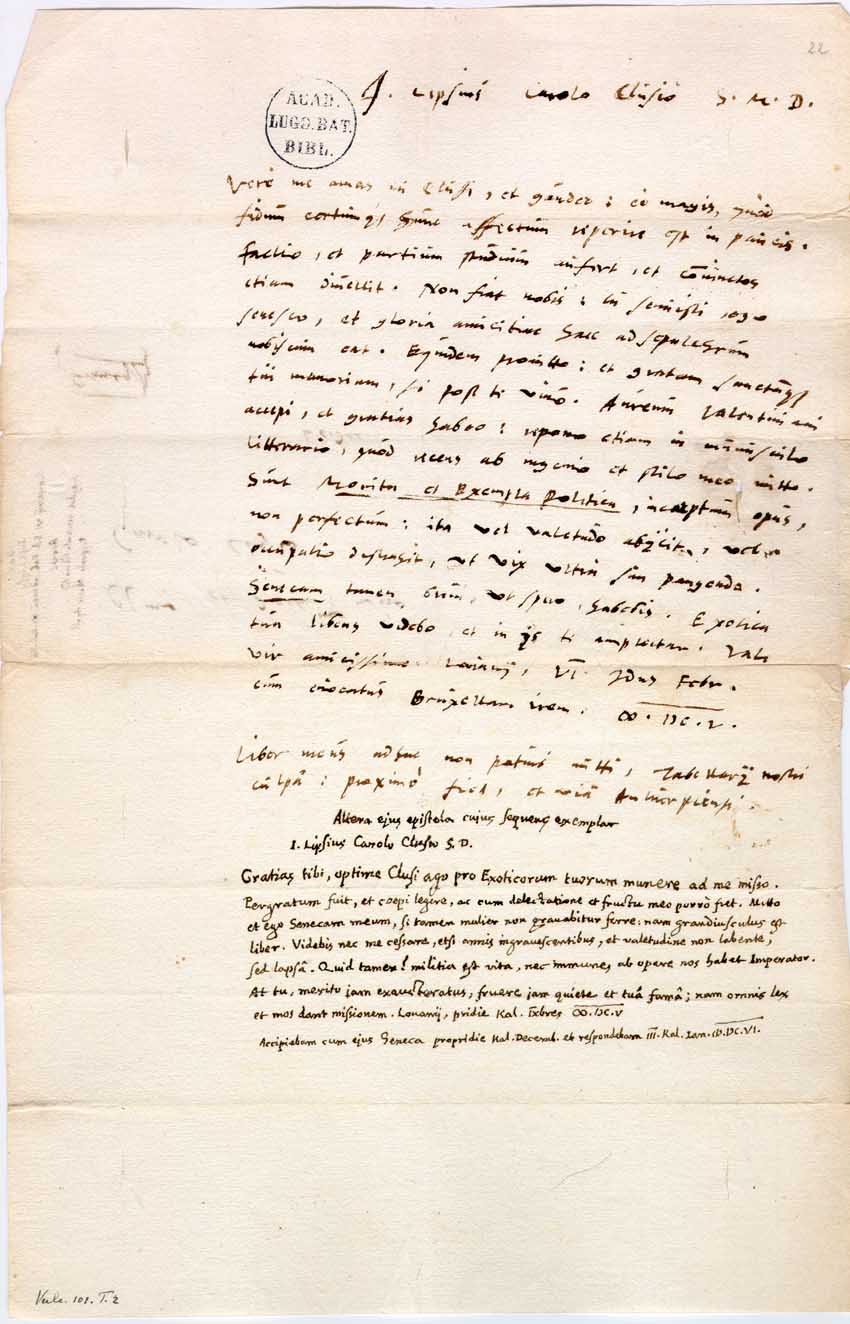 22
ACAD.
LUGD. BAT.
BIBL.
I. Lipsius Carolo Clusio S. M. D.
Vere me amas mi Clusi, et gaudeo: eo magis, quòd
fidum certumq; hunc affectum reperire est in paucis.
factio, et partium studium aufert, et coniunctos
etiam diuellit. Non fiat nobis: tu senuisti, ego
senesco, et gloria amicitiae haec ad sepulchrum
nobiscum eat. Equidem promitto: et gratam sanctamq;
tui memoriam, si post te viuo. Aureum Valentiniani
accepi, et gratias habeo: repono etiam in munusculo
litterario, quòd recens ab ingenio et stilo meo mitto.
Sunt Monita et Exempla Politica, inceptum opus,
non perfectum: ita vel valetudo abijcit, vel
occupatio distrahit, ut vix ultra sim pangenda.
Senecam tamen breui, ut spero, habebis. Exotica
tua libens videbo, et in ijs te amplectar. Vale
vir amicissime. Louanij, VI. Idus Febr.
cùm euocatus Bruxellam irem. ꝏ. DC. V.
Liber meus adhuc non potuit mitti, Tabellarij nostri
culpâ: proximo fiet, et viâ Antuerpiensi.
Altera ejus epistola cujus sequens exemplar
I. Lipsius Carolo Clusio S. D.
Gratias tibi, optime Clusi ago pro Exoticorum tuorum munere ad me misso.
Pergratum fuit, et coepi legere, ac cum delectatione et fructu meo porrò fiet. Mitto
et ego Senecam meum, si tamen mulier non gravabitur ferre: nam grandiusculus est
liber. Videbis nec me cessare, etsi annis ingravescentibus, et valetudine non labente,
sed lapsâ. Quid tamen? militia est vita, nec immunes ab opere nos habet Imperator.
At tu, merito jam exauctoratus, fruere jam quiete et tuâ famâ; nam omnis lex
et mos dant missionem. Lovanij, pridie Kal. IXbres ꝏ.DC.V
Accipiebam cum ejus Seneca propridie Kal. Decemb. et respondebam III. Kal. Ian. ꝏ.DC.VI.
Vulc. 101. T. 2